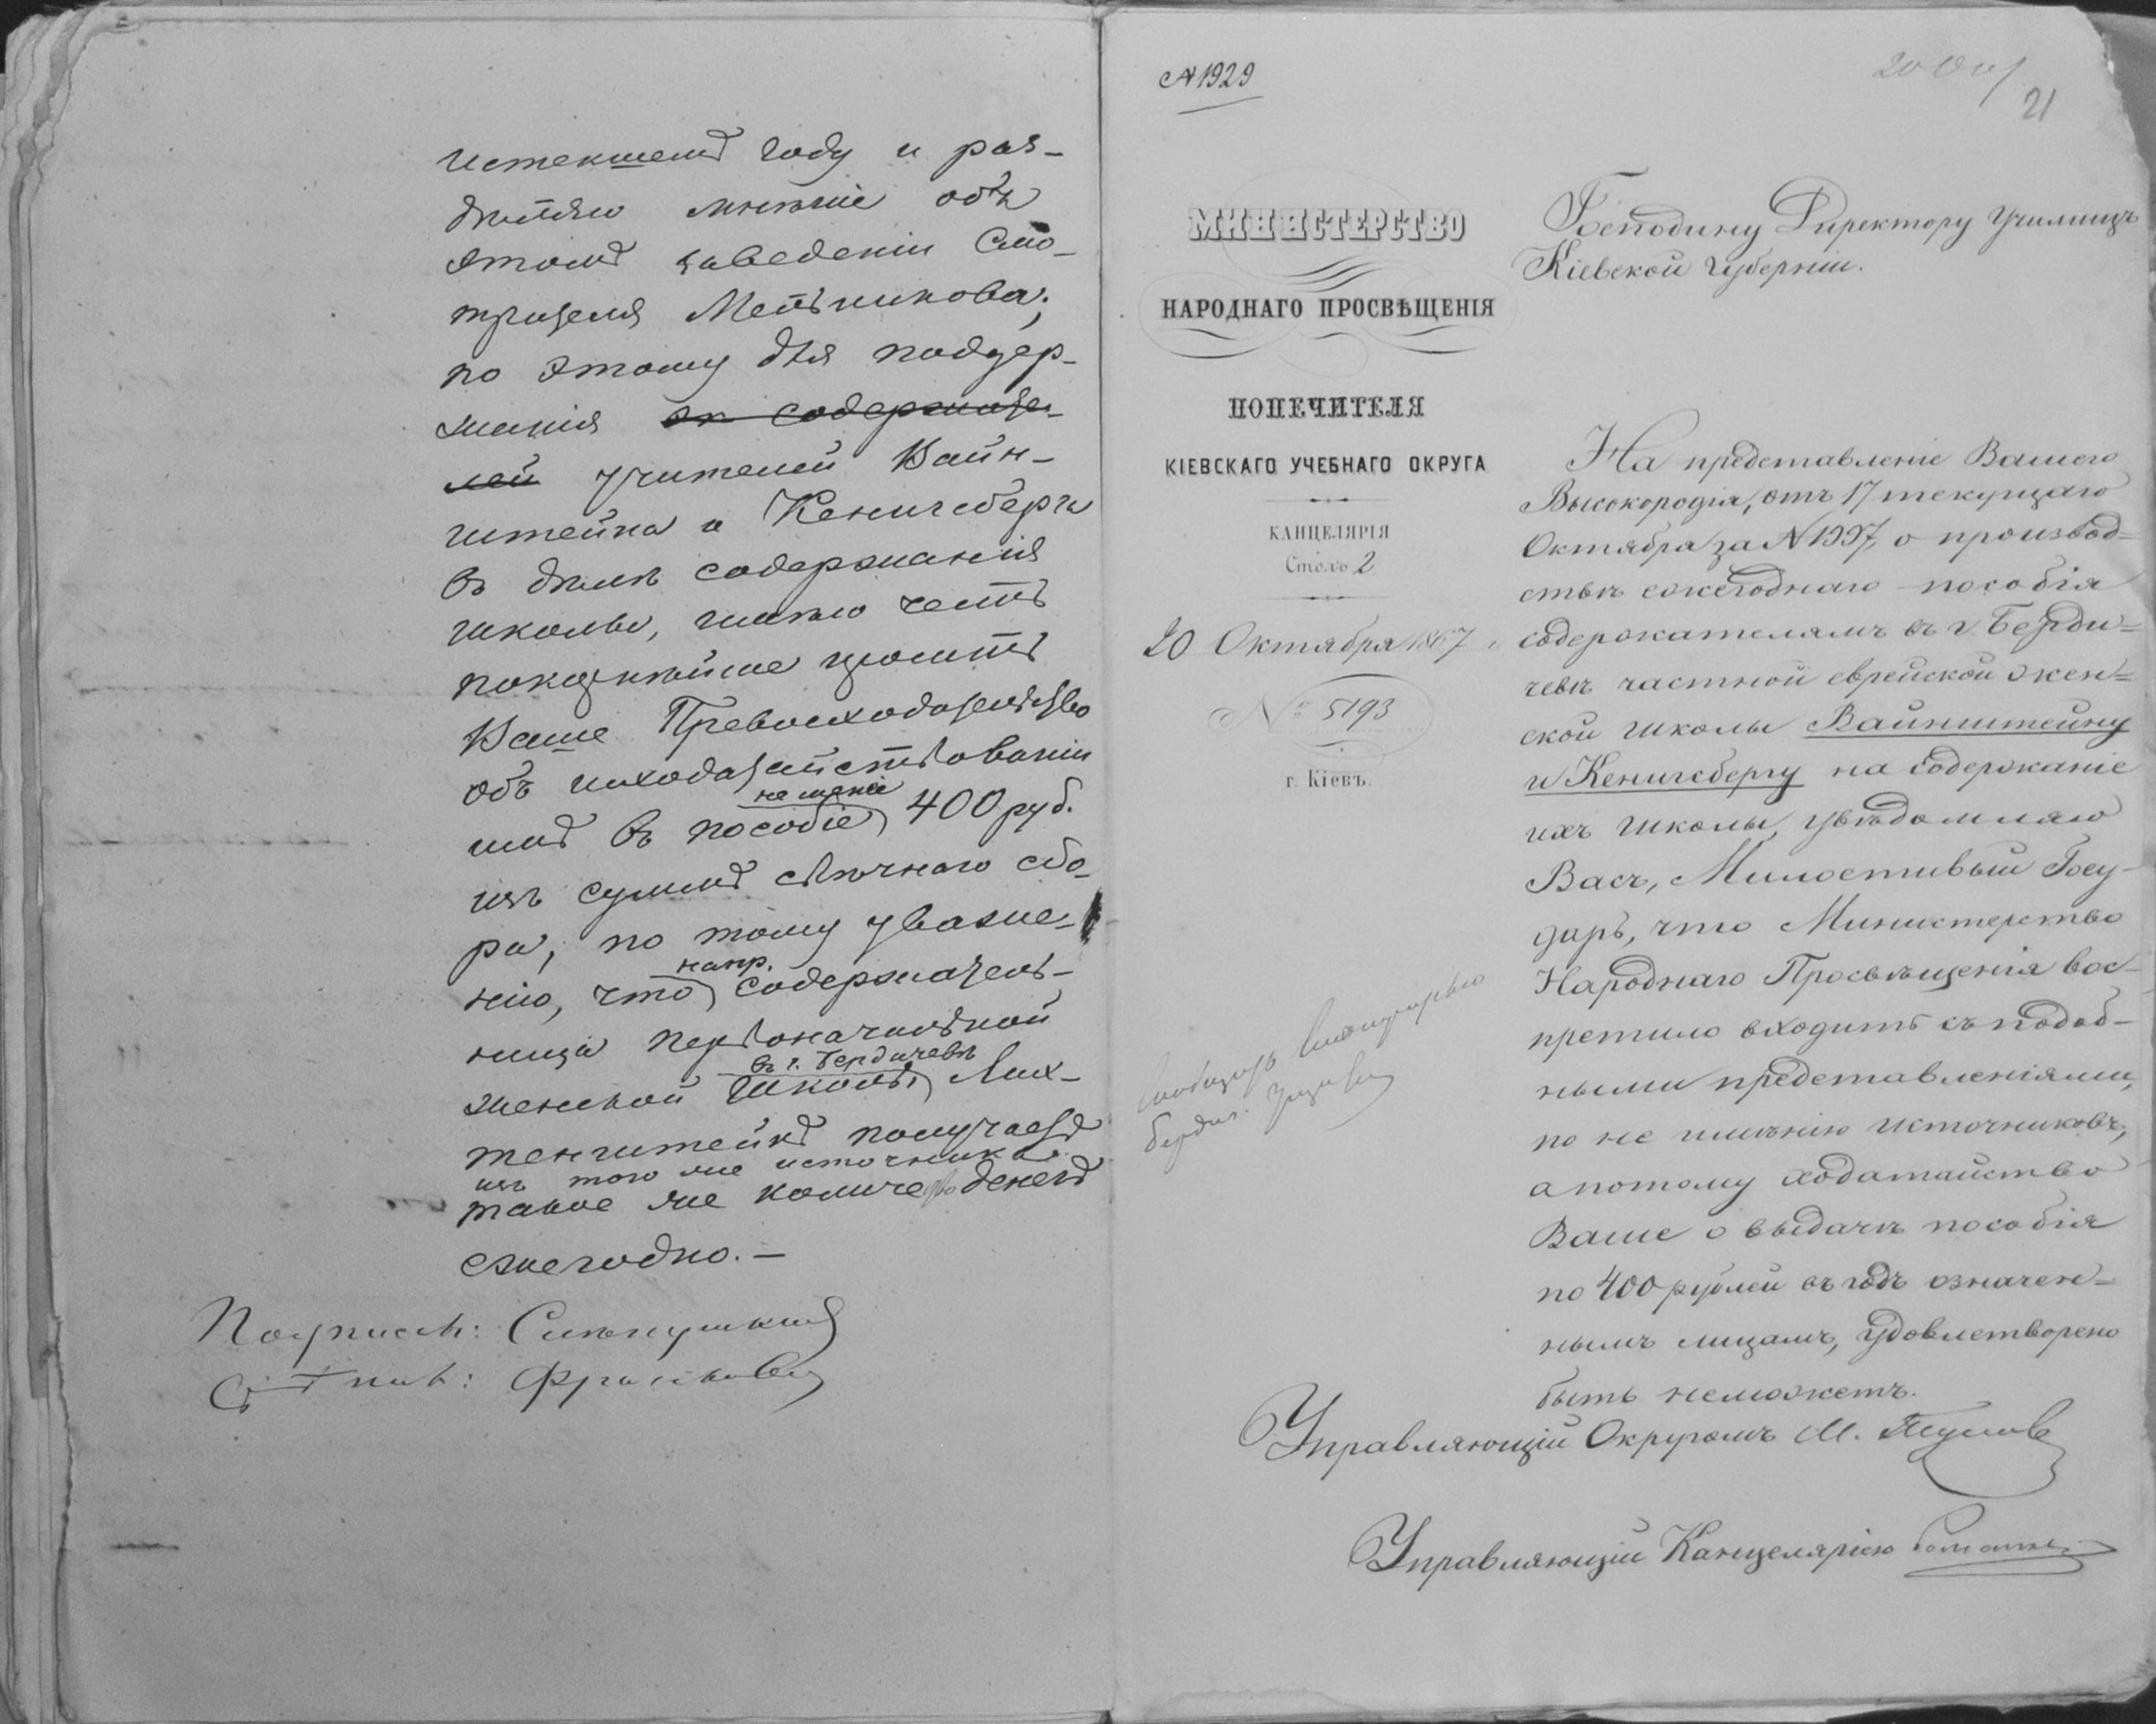 истекшемъ году и раз-
дѣляю мнѣніе объ
этомъ заведеніи Смо-
трителя Мельникова;
по этому для поддер-
жанія содержате-
лей учителей Вайн-
штейна и Кенигсберга
въ дѣлѣ содержанія
школы, имѣю честь
покорнѣйше просить
Ваше Превосходительство
объ исходатайствованіи
имъ въ пособіе 400 руб.
изъ суммъ свѣчнаго сбо-
ра, по тому уваже-
нію, что напр. содержатель-
ница первоначальной
женской школы въ г. Бердичевѣ Лих-
тенштейнъ получаетъ
изъ того же источника
такое же количество денегъ
ежегодно. —
Подписалъ:
№ 1929
21
МИНИСТЕРСТВО
НАРОДНАГО ПРОСВѢЩЕНІЯ
ПОПЕЧИТЕЛЯ
КІЕВСКАГО УЧЕБНАГО ОКРУГА
КАНЦЕЛЯРІЯ
Столъ 2
20 Октября 1867
№ 5193
г. Кіевъ.
Господину Директору Училищъ
Кіевской губерніи.
На представленіе Вашего
Высокородія, отъ 17 текущаго
Октября за № 1997, о производ=
ствѣ ежегоднаго пособія
содержателямъ въ г. Берди=
чевѣ частной еврейской жен=
ской школы Вайнштейну
и Кенигсбергу на содержаніе
ихъ школы, увѣдомляю
Васъ, Милостивый Госу-
дарь, что Министерство
Народнаго Просвѣщенія вос-
претило входить съ подоб-
ными представленіями,
по не имѣнію источниковъ,
а потому ходатайство
Ваше о выдачѣ пособія
по 400 рублей въ годъ означен-
нымъ лицамъ, удовлетворено
быть неможетъ.
Управляющій Округомъ М. Тулов
Управляющій Канцеляріею